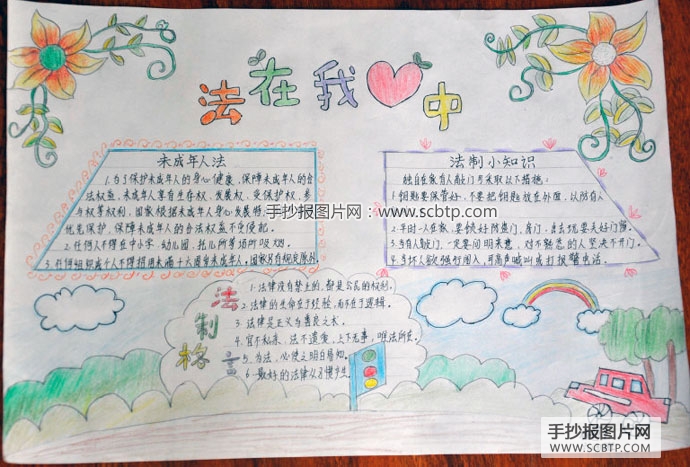 手抄报图片网
WWW.SCBTP.COM
法在我中
未成年人法
1.为了保护未成年人的身心健康，保障未成年人的合
法权益，未成年人享有生存权、发展权、受保护权、参
与权等权利，国家根据未成年人身心发展特
优先保护，保障未成年人的合法权益不受侵犯。
2.任何人不得在中小学、幼儿园、托儿所等场所吸烟。
3.任何组织或个人不得招用未满十六周岁未成年人，国家另有规定除外
法制小知识
独自在家有人敲门可采取以下措施：
1.钥匙要保管好，不要把钥匙放在外面，以防有人
2.平时一人在家，要快好防盗门、房门，出去玩要关好门窗。
3.当有人敲门，一定要问明来意，对不熟悉的人坚决不开门。
4.当坏人欲强行闯入，可高声喊叫或打报警电话。
手抄报图片网：www.scbtp.com
法制格言
1.法律没有禁止的，都是公民的权利。
2.法律的生命在于经验，而不在于逻辑。
3.法律是正义与善良之术。
4.官不私亲，法不遗爱，上下无事，唯法所在。
5.为法，必使之明白易知。
6.最好的法律从习惯产生。
手抄报图片网
SCBTP.COM